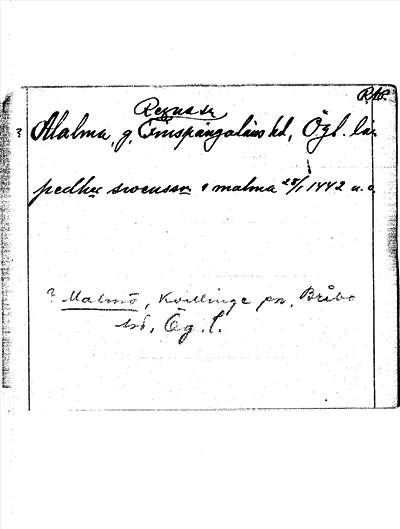 R.A.P.
Regna sn
? Malma, g, Finspångaläns hd, Ögl. län
pedher swensson i malma 28/1 1442 u.o
? Malmö, Kvillinge sn, Bråbo
hd, Ög. l.